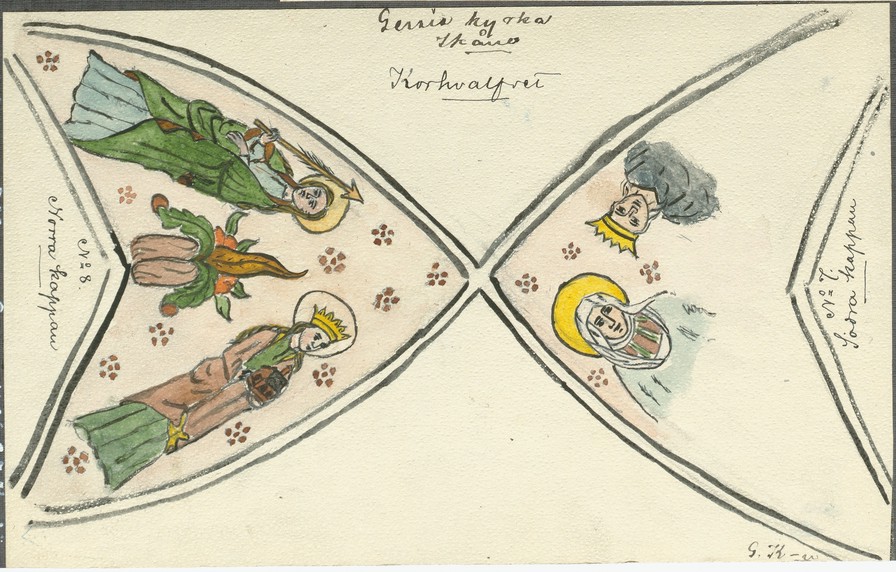 Gersnäs kyrka
Skåne
Korhvalfvet
No 8.
Norra kappan
No 7.
Södra kappan
G. K-n